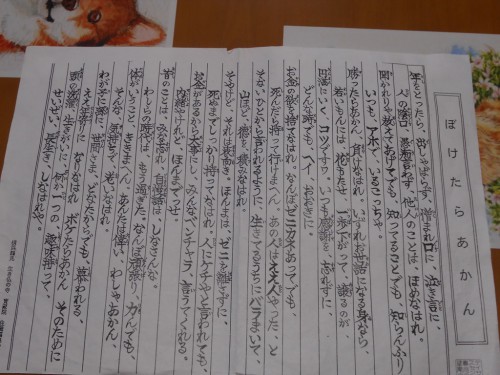 ぼけたらあかん
年をとったら、出しゃばらず、憎まれ口に、泣き言に、
人の陰口、愚痴いわず、他人のことは、ほめなはれ。
聞かれりゃ教えてあげてても、知ってることでも、知らんふり
いつも、アホで、いるこっちゃ。
勝ったらあかん、負けなはれ。いずれお世話になる身なら、
若いもんには、花もたせ、一歩さがって、譲るのが、
円満に、いく、コツですワ。いつも感謝を、忘れずに、
どんな時でも、ヘイ、おおきに
お金の欲を捨てなはれ。なんぼゼニカネあってでも、
死んだら持って行けまへん。あの人はええ人やった、と
そないひとから言われるように、生きてるうちにバラまいて、
山ほど、徳を、積みなはれ。
そやけど、それは表向き。ほんまは、ゼニを離さずに、
死ぬまでしっかり持ってなはれ。人にケチやと言われても、
お金があるから大事にし、みんな、ベンチャラ、言うてくれる。
内緒やけれど、ほんまでっせ。
昔のことは、みな忘れ、自慢話は、しなさんな。
わしらの時代は、もう過ぎた。なんぼ頑張り、力んでも、
体がいうこと、ききまへん。あんたは偉い、わしゃあかん、
そんな、気持で、老いなはれ。
わが子に孫に、世間さま、どなたからでも、慕われる、
ええ年寄りに、なりなはれ。ボケたらあかん そのために
頭の洗濯、生きがいに、何か一つの、趣味持って、
せいぜい、長生き、しなはれや。